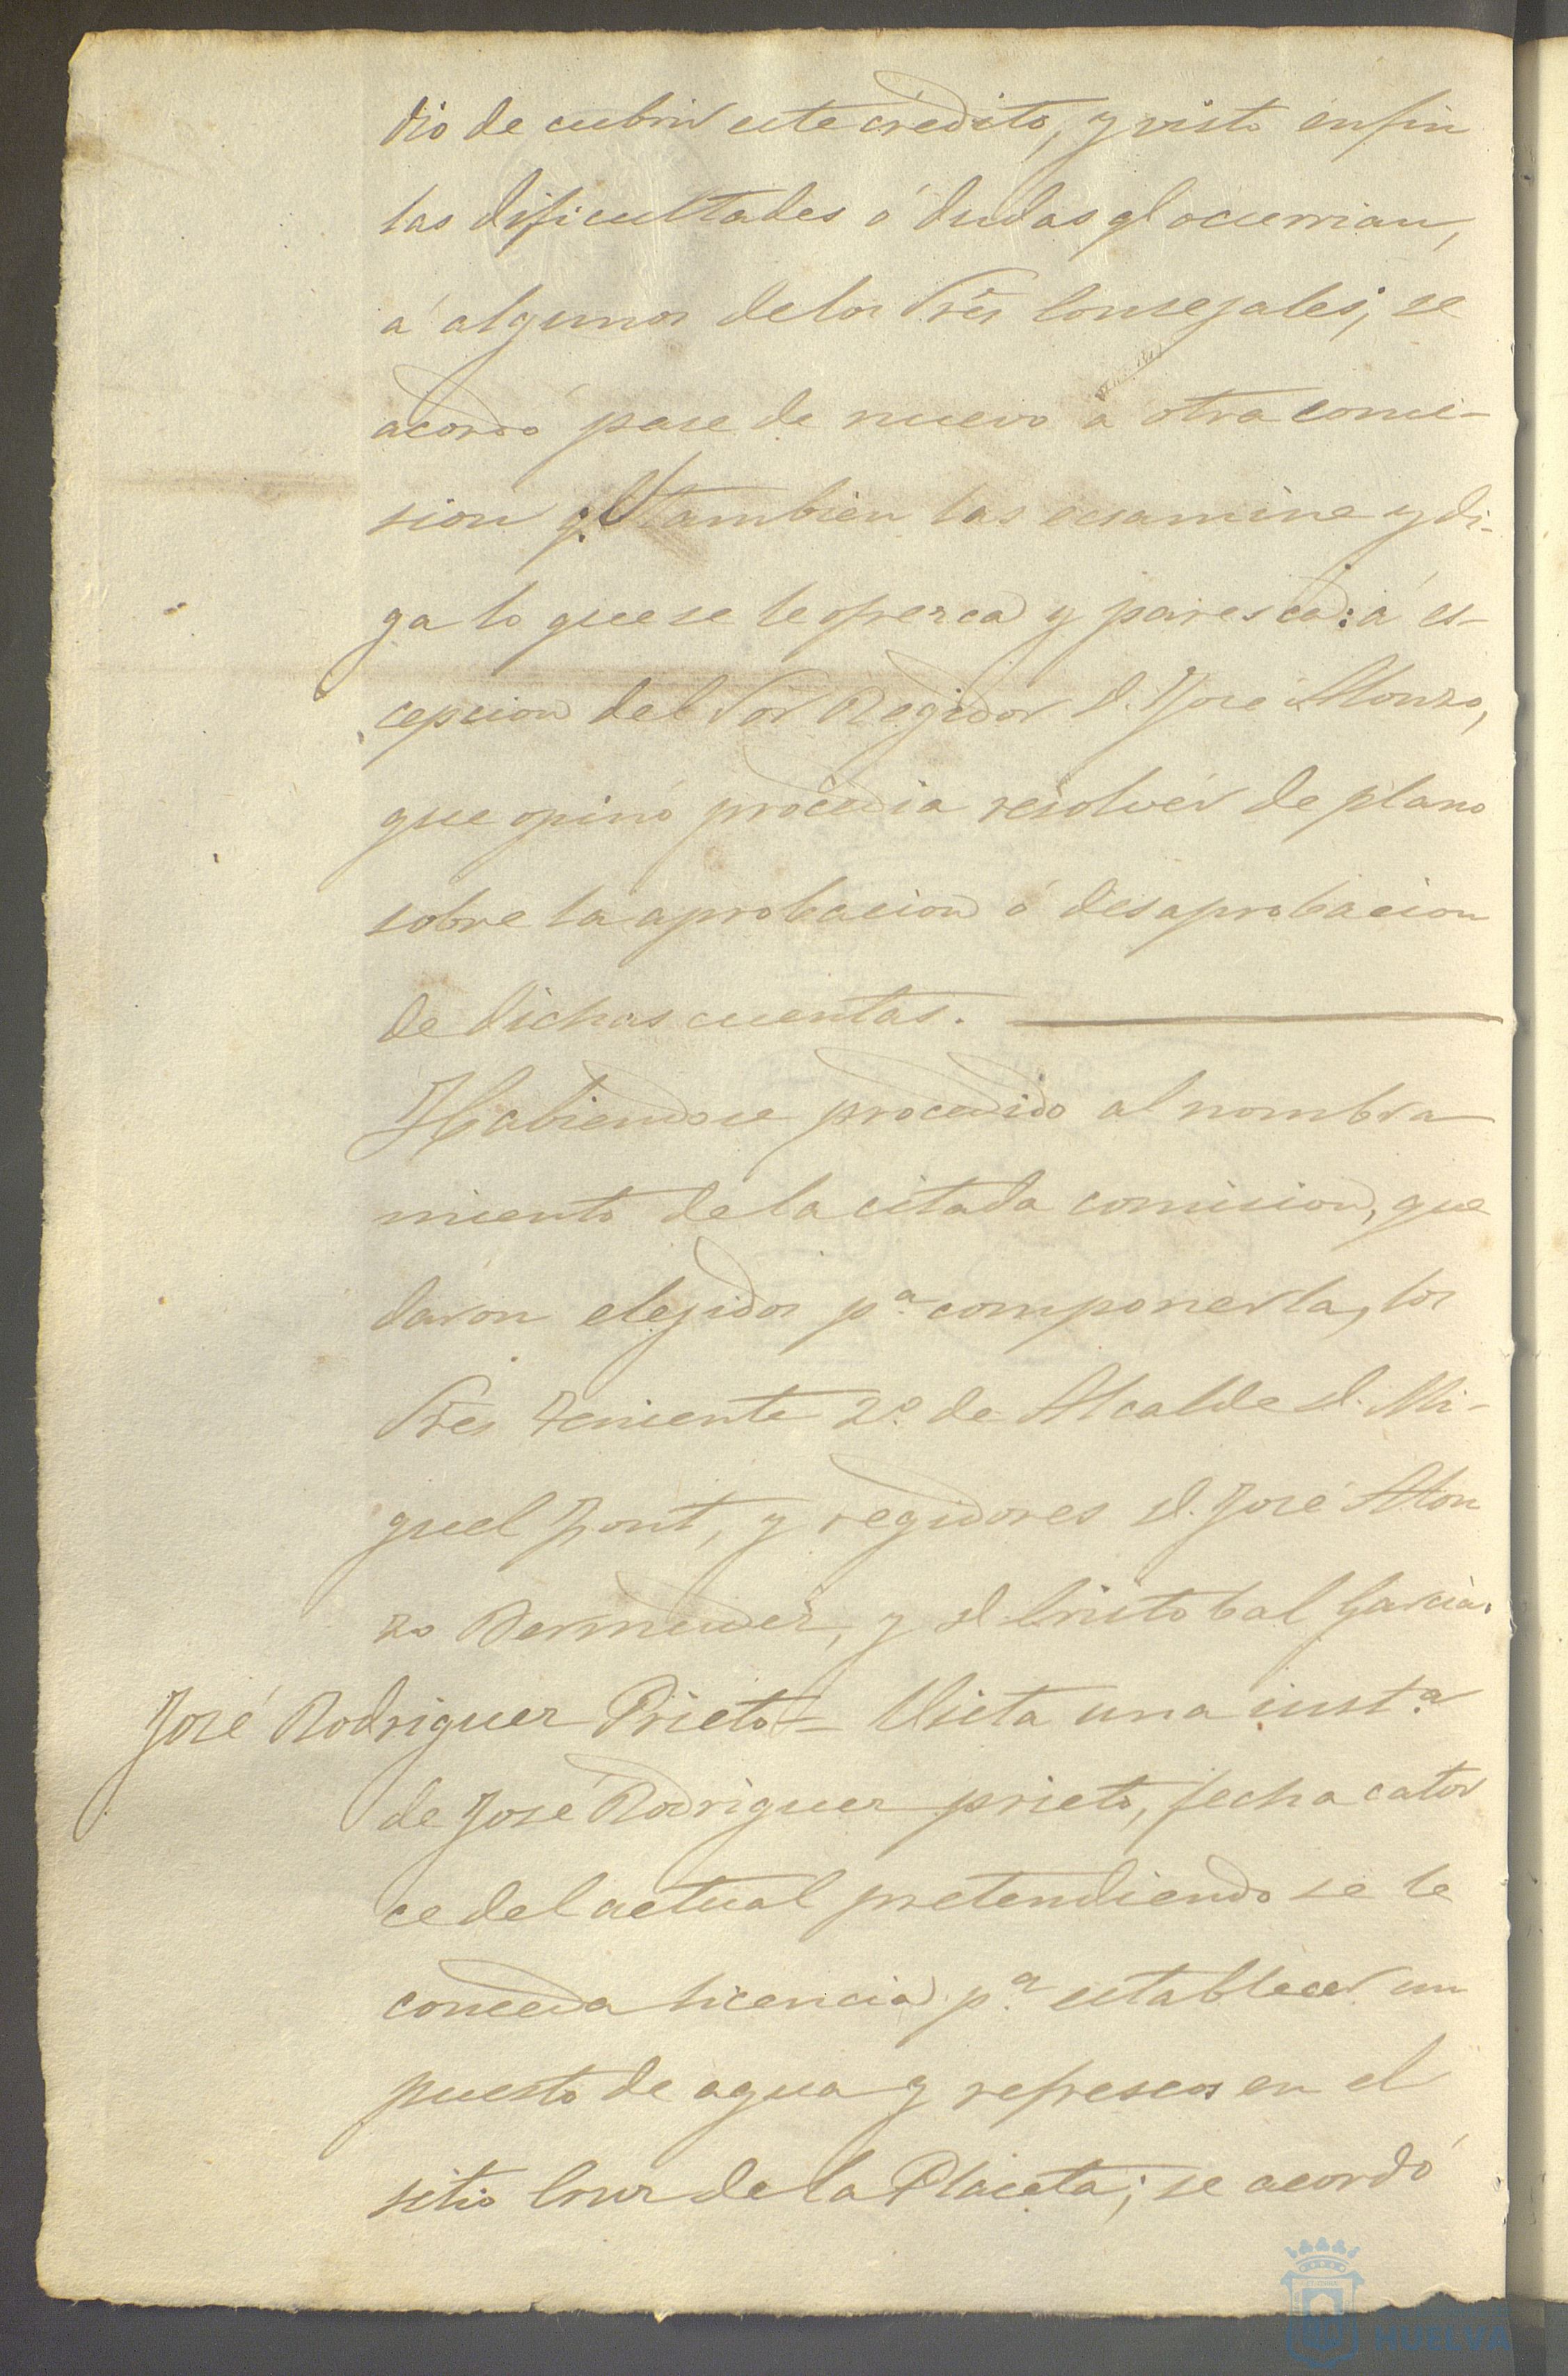 dio de cubrir este crédito, y visto en fin
las dificultades ó dudas qe ocurrian,
á algunos de los Sres Consejales; se
acordó pase de nuevo á otra comi-
sion qe tambien las ecsamine y di-
ga lo que se le ofrezca y paresca: á es-
cepcion del Sor Regidor D. José Alonzo,
que opinó procedia resolver de plano
sobre la aprobacion ó desaprobacion
de dichas cuentas.
Habiendose procedido al nombra
miento de la citada comision, que
daron elejidos pa. componerla, los
Sres Teniente 2º de Alcalde D. Mi-
guel Font, y regidores D. José Alon
zo Bermudez, y D. Cristobal Garcia.
José Rodriguez Prieto = Vista una insta.
de José Rodriguez prieto, fecha cator
ce del actual pretendiendo se le
conceda licencia pa. establecer un
puesto de agua y refrescos en el
sitio Cruz de la Placeta; se acordó
HUELVA